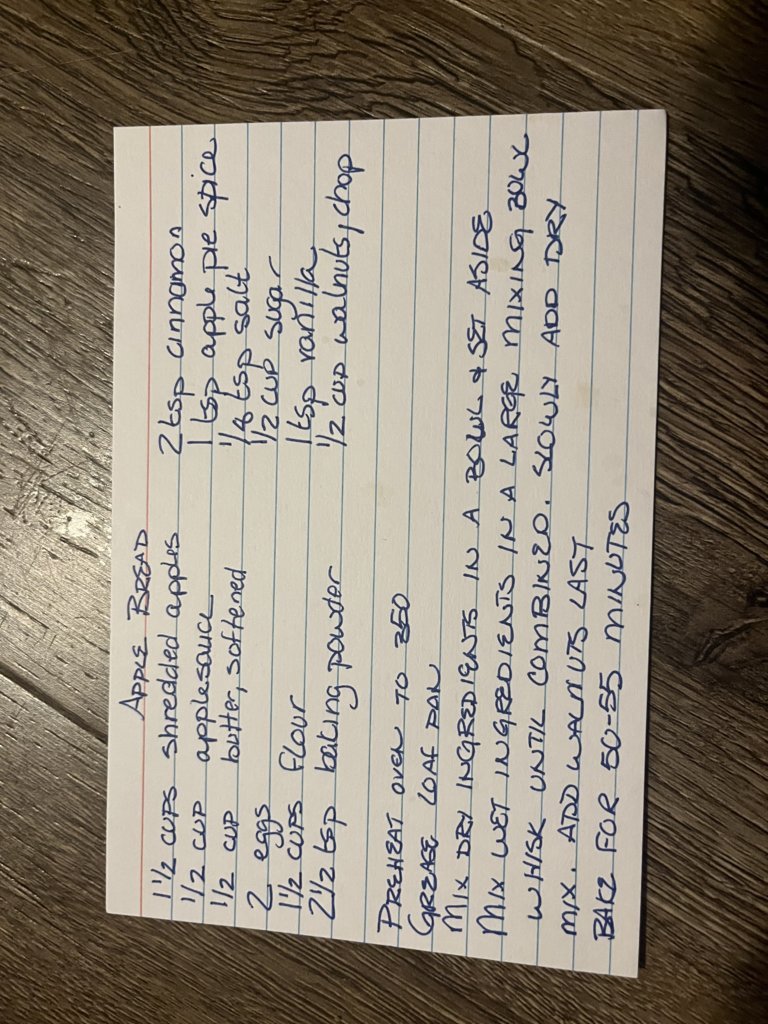 APPLE BREAD
1 1/2 CUPS shredded apples 2 tsp cinnamon
1/2 CUP applesauce 1 tsp apple pie spice
1/2 CUP butter, softened 1/8 tsp salt
2 eggs 1/2 CUP sugar
1 1/2 CUPS flour 1 tsp vanilla
2 1/2 tsp baking powder 1/2 CUP walnuts, chop
PREHEAT OVEN TO 350
GREASE LOAF PAN
MIX DRY INGREDIENTS IN A BOWL & SET ASIDE
MIX WET INGREDIENTS IN A LARGE MIXING BOWL
WHISK UNTIL COMBINED. SLOWLY ADD DRY
MIX. ADD WALNUTS LAST
BAKE FOR 50-55 MINUTES